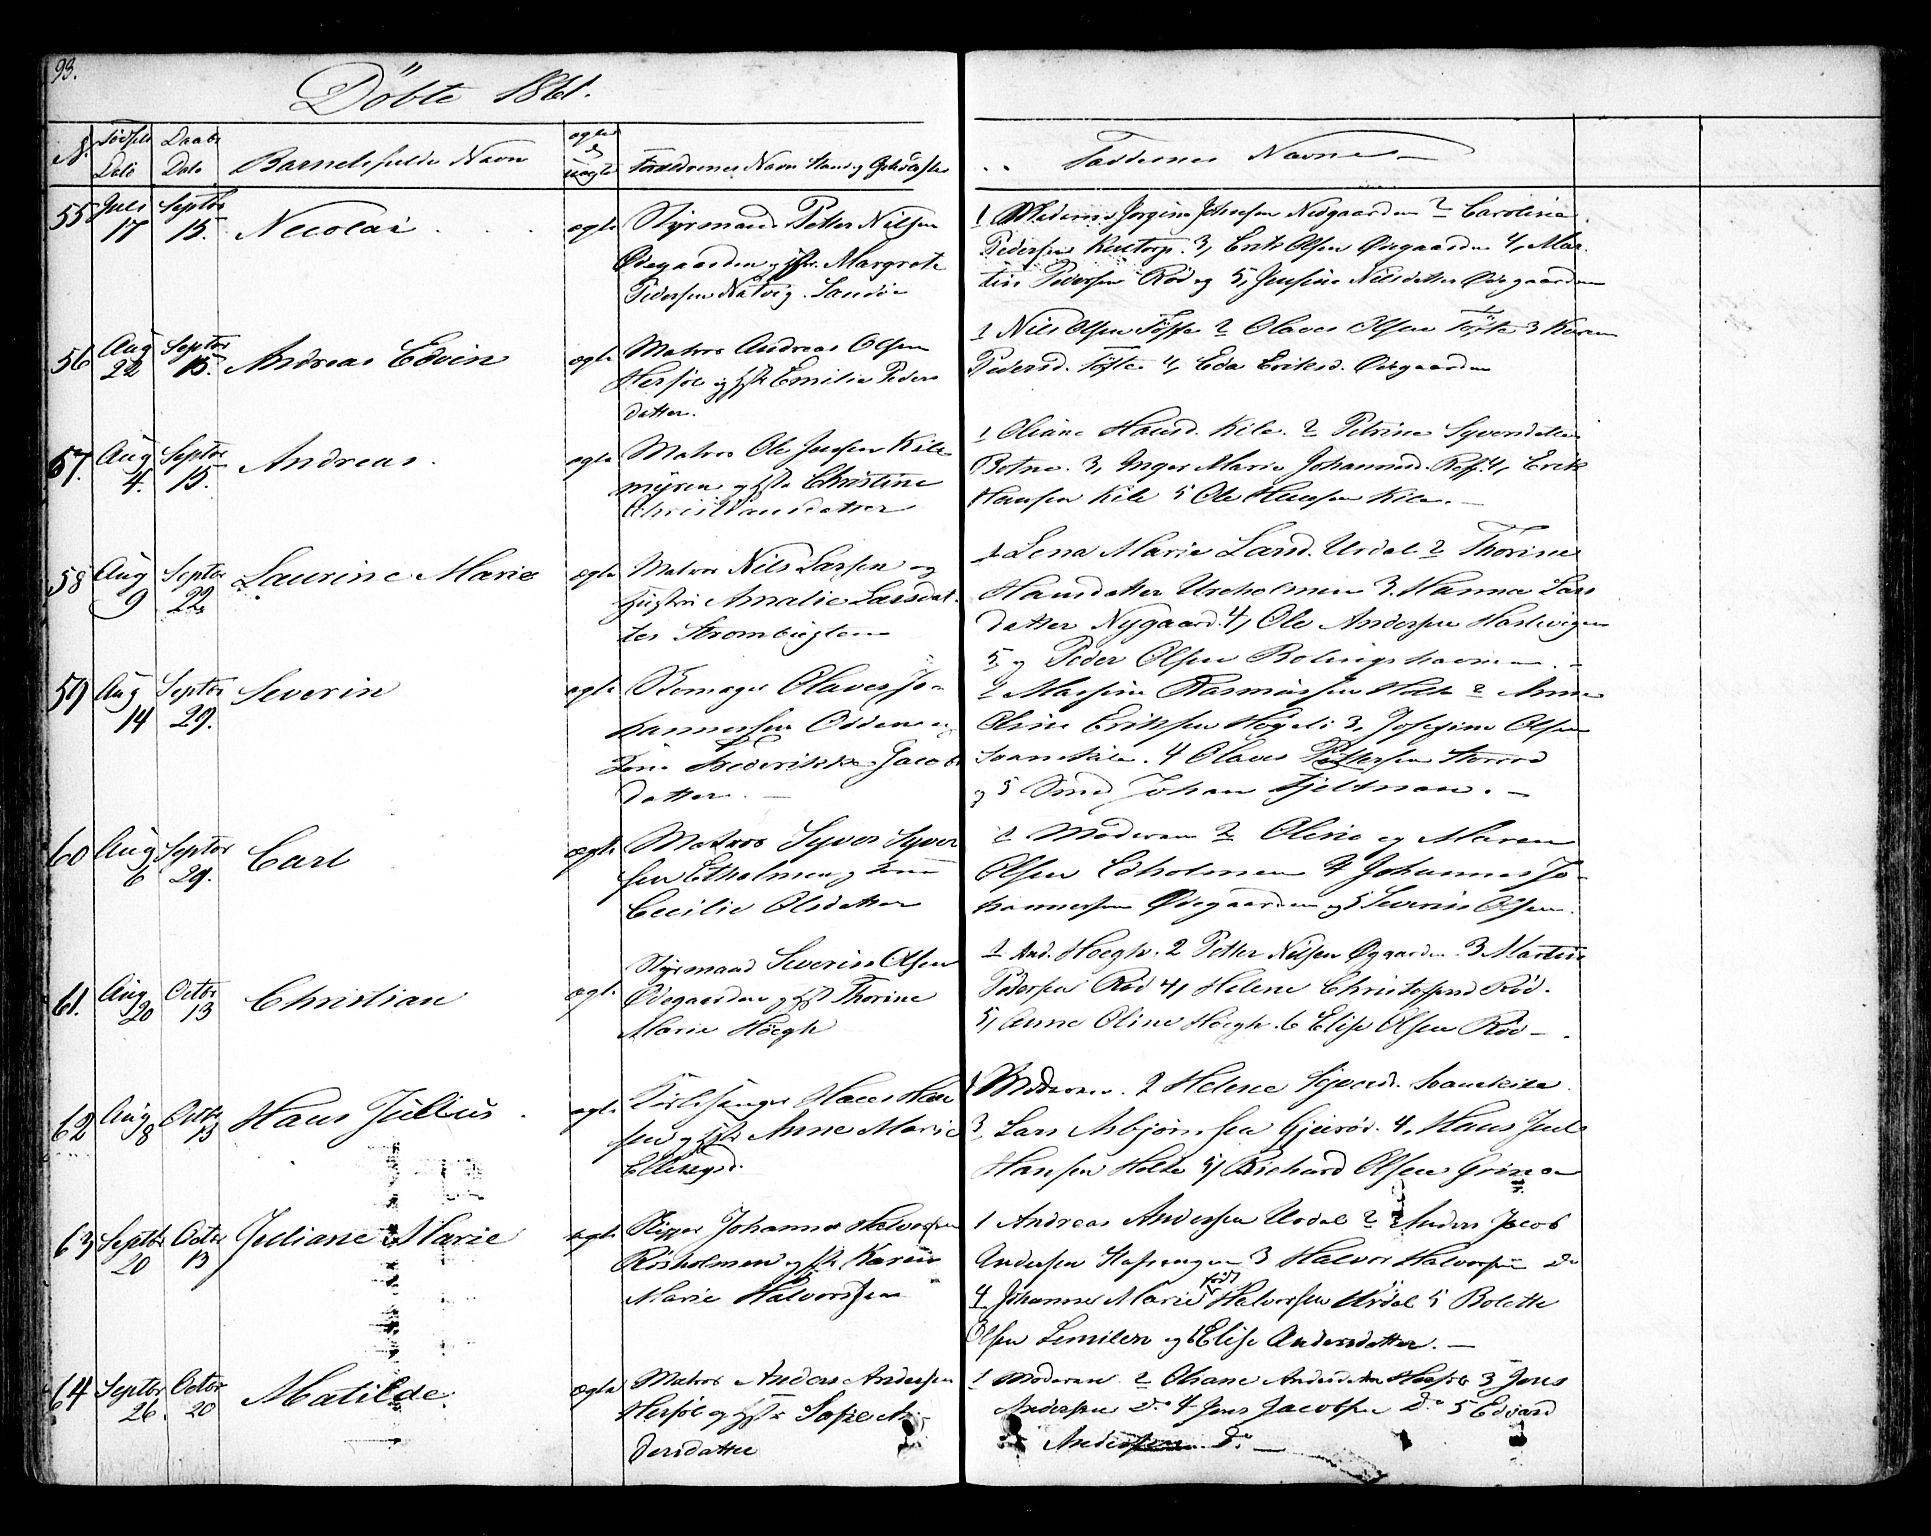 93.
Döbte 1861.
N. Födsels Dato Daabs Dato Barnets fulde Navn ægte d uægte Forældrenes Navn Stand og Opholdsted
Faddernes Navne
55 Juli 17 Septbr 15. Necolai ægte Styrmand Petter Nilsen
Ödegaarden og Margrete
Pedersen Natvig. Sandöe
1 Madame Jorgine Johnsen Nedgaarden 2 Caroline
Pedersen 3, Erik Olsen Ödegaarden 4, Mar-
tin Pedersen Röd og 5, Jensine Nilsdatter Ödegaarden
56 Aug 22 Septbr 15. Andreas Edvin ægte Matros Andreas Olsen
Hersöe og Emilie Peders
datter.
1 Nils Olsen Töfte 2 Olaves Olsen Töfte 3 Karen
Pedersd. Töfte 4, Eda Eriksd. Ödegaarden
57. Aug 4. Septbr 15. Andreas. ægte Matros Ole Jensen Kile
myren og Christine
Christiansdatter
1 Oliane Hansd. Kile. 2 Petrine Syversdatter
Botne. 3, Inger Marie Johannesd. 4, Erik
Hansen Kile 5 Ole Hansen Kile.
58 Aug 9 Septbr 22 Laurine Marie ægte Matros Nils Larsen og
hustru Amalie Larsdat-
ter Strombugten
1 Lena Marie Larsd. Urdal 2 Thorine
Hansdatter Ureholmen 3. Hanna Lars
datter Nygaard. 4, Ole Andersen
5. og Peder Olsen
59 Aug 14 Septbr 29. Severin ægte Olaves Jo-
hannessen Odden og
Kone Frederikke Jacobs
datter. —
1 Rasmussen Holte 2 Anne
Oline Eriksen Högeli 3, Josefine Olsen
Svanekile. 4 Olaves Pettersen
og 5 Smed Johan Fjeldman. —
60 Aug 6 Septbr 29. Carl ægte Matros Syver Syver
sen Edholmen og Kone
Cecilie Olsdatter
1 Moderen 2 Oline og Maren
Olsen Edholmen 4 Johannes Jo-
hannessen Ödegaarden og 5 Severin Olsen.
61. Aug 20 Octbr 13 Christian ægte Styrmand Severin Olsen
Ödegaarden og Thorine
Marie Höegh
1 And. Hoegh. 2 Petter Nilsen Ögaarden. 3 Martin
Pedersen Röd 4, Helene Christophersd Röd.
5, Anne Oline Höegh. 6 Elise Olsen Röd —
62 Aug 8 Octbr 13 Hans Julius. ægte Kirkesanger Hans Han
sen og Anne Marie
Ellingsd.
1 Moderen. 2 Helene Svanekile.
3, Lars Asbjörnsen Gjeiröd. 4, Hans Juul
Hansen Holte 5, Richard Olsen
63 Septbr 20 Octbr 13 Juliane Marie ægte Skipper Johannes Halvorsen
Risholmen og Karen
Marie Halvorsen
1 Andreas Andersen Urdal 2 Anders Jacob
Andersen 3 Halvor Halvorsen do
4. Johanne Marie Halvorsen Urdal 5 Bolette
Olsen og 6 Elise Andersdatter. —
64 Septbr 26. Octbr 20 Matilde. ægte Matros Anders Andersen
Hersöe og Sofie An-
dersdatter
1 Moderen 2 Oliane Andersdatter Hersöe 3 Jens
Andersen do 4 Jens Jacobsen Do 5 Edvard
Andersen do —